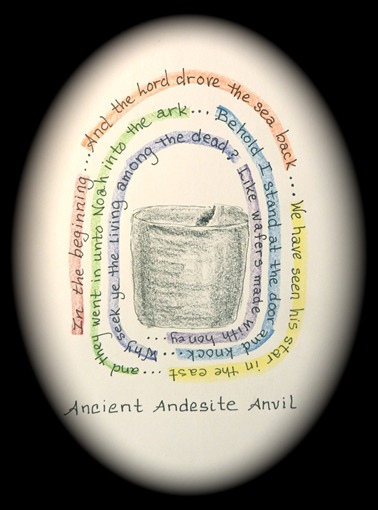 In the beginning ...And the Lord drove the sea back ...We have seen his star in the east
....and they went in unto Noah into the ark ....Behold I stand at the door and knock
...Why seek ye the living among the dead? Like wafers made with honey ....
Ancient Andesite Anvil